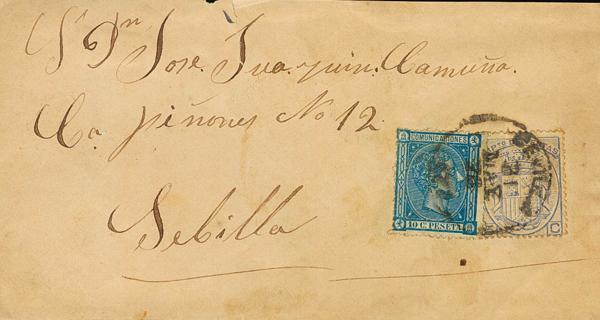 Sr Dn Jose Juaquin Camuña.
Ca piñones No 12
Sebilla
COMUNICACIONES
10 Cs PESETA